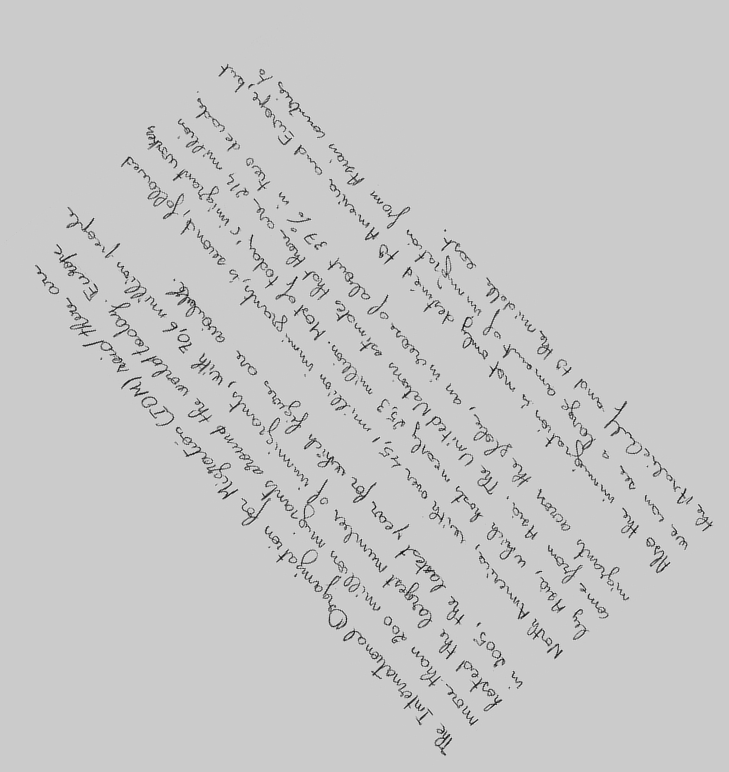 The International Organization for Migration (IOM) said there are
more than 200 million migrants around the world today. Europe
hosted the largest number of immigrants, with 70,6 million people
in 2005, the lasted year for which figures are available.
North America, with over 45,1 million immigrants, is second, followed
by Asia, which hosts nearly 25,3 million. Most of today's migrant workers
come from Asia. The United Nations estimates that there are 214 million
migrants across the globe, an increase of about 37% in two decades.
Also the immigration is not only destined to America and Europe, but
we can see a large amount of immigration from Asian countries to
the Arabic Gulf and to the middle east.